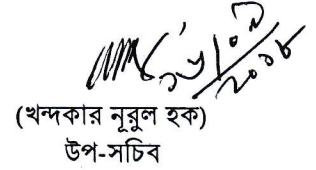 (খন্দকার নূরুল হক)
উপ-সচিব